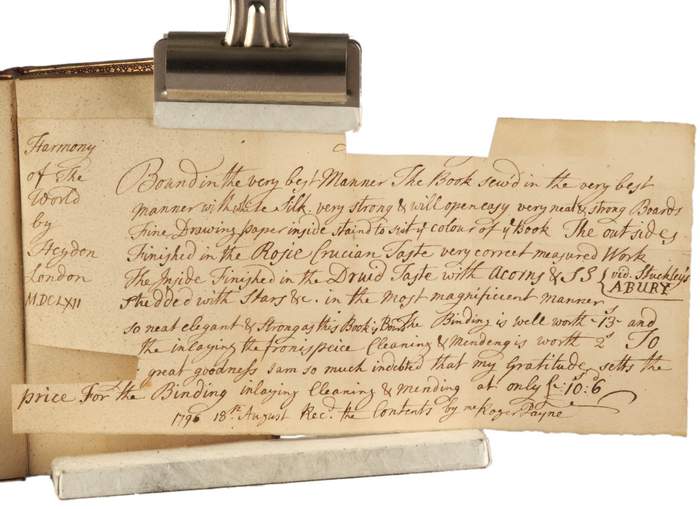 Harmony
of The
World
by
Heydon
London
MDCLXII
Bound in the very best Manner The Book sew'd in the very best
manner with white Silk, very strong & will open easy very neat & strong Boards
Fine Drawing paper inside staind to suit ye colour of ye Book The outsides
Finished in the Rosie Crucian Taste very correct measured Work
The Inside Finished in the Druid Taste with Acorns & SS { vid. Stuckley's
ABURY
Studded with Stars &c. in the most magnificent manner
so neat elegant & strong as this Book is Bound The Binding is well worth 13s and
the inlaying the fronispeice Cleaning & Mending is worth 2s To
great goodness I am so much indebted that my Gratitude setts the
price For the Binding inlaying Cleaning & Mending at only £ 10s:6d
1796 18th August Recd. the Contents by me Roger Payne